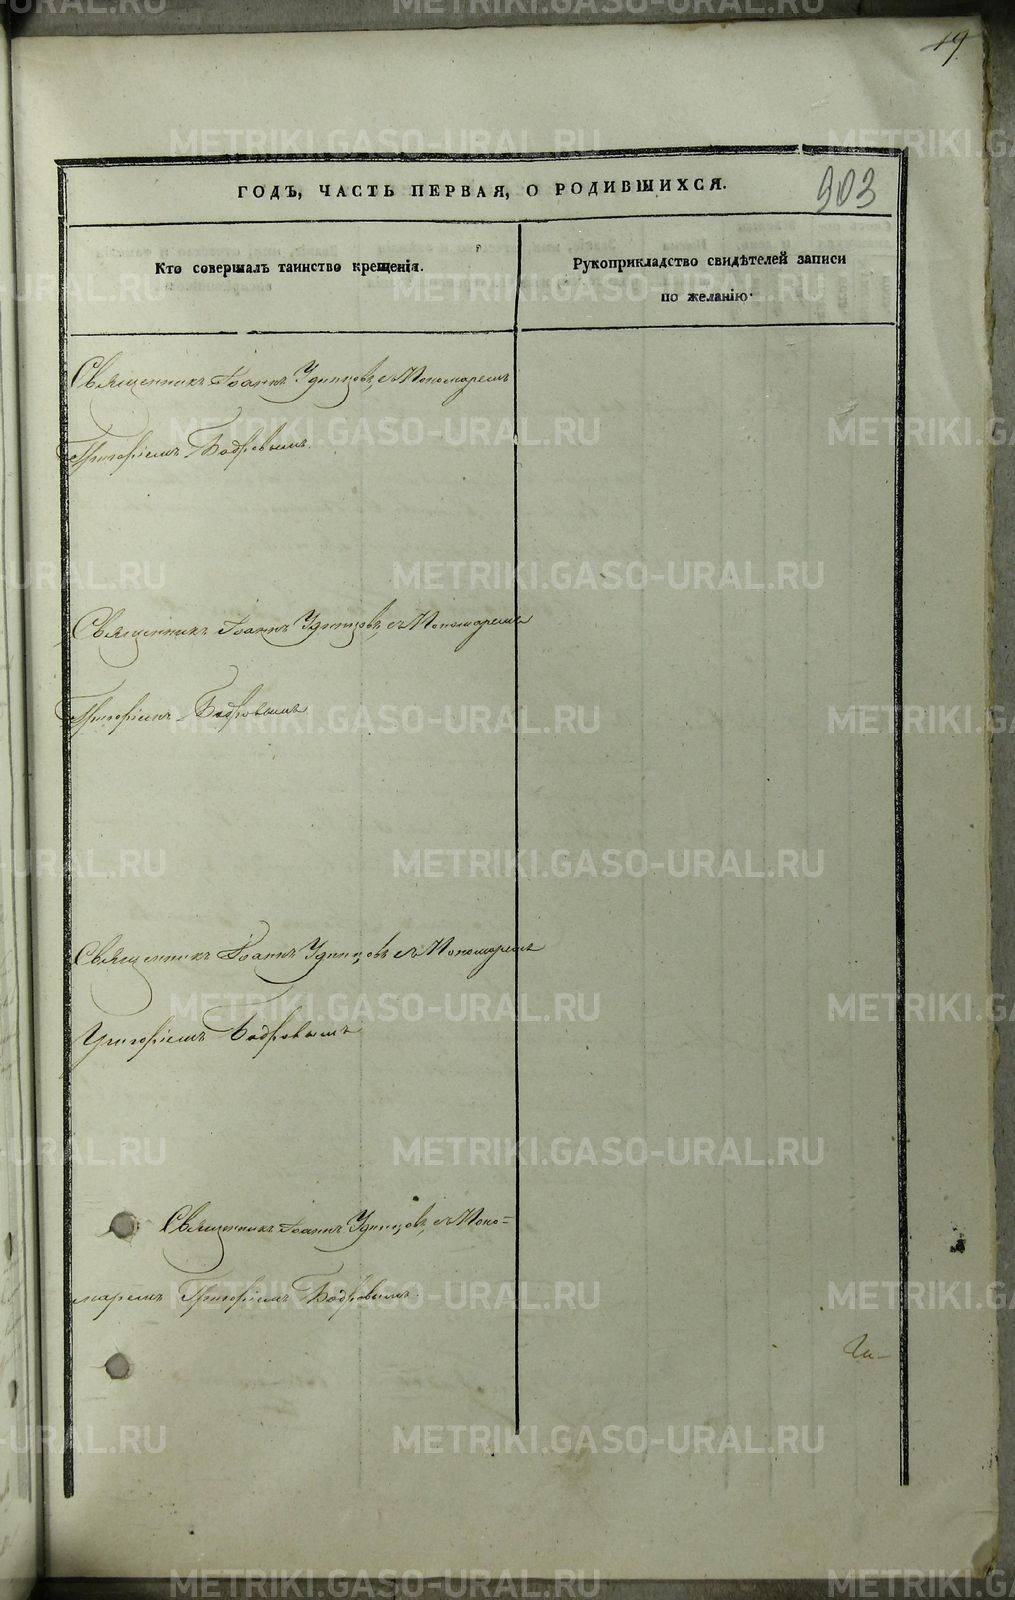 19
903
ГОДЪ, ЧАСТЬ ПЕРВАЯ, О РОДИВШИХСЯ.
Кто совершалъ таинство крещенія.
Рукоприкладство свидѣтелей записи
по желанію.
Священникъ Іоаннъ Удинцовъ, съ Пономаремъ
Григоріемъ Бодровымъ.
Священникъ Іоаннъ Удинцовъ, съ Пономаремъ
Григоріемъ Бодровымъ
Священникъ Іоаннъ Удинцовъ съ Пономаремъ
Григоріемъ Бодровымъ
Священникъ Іоаннъ Удинцовъ, съ Поно=
маремъ Григоріемъ Бодровымъ.
METRIKI.GASO-URAL.RU